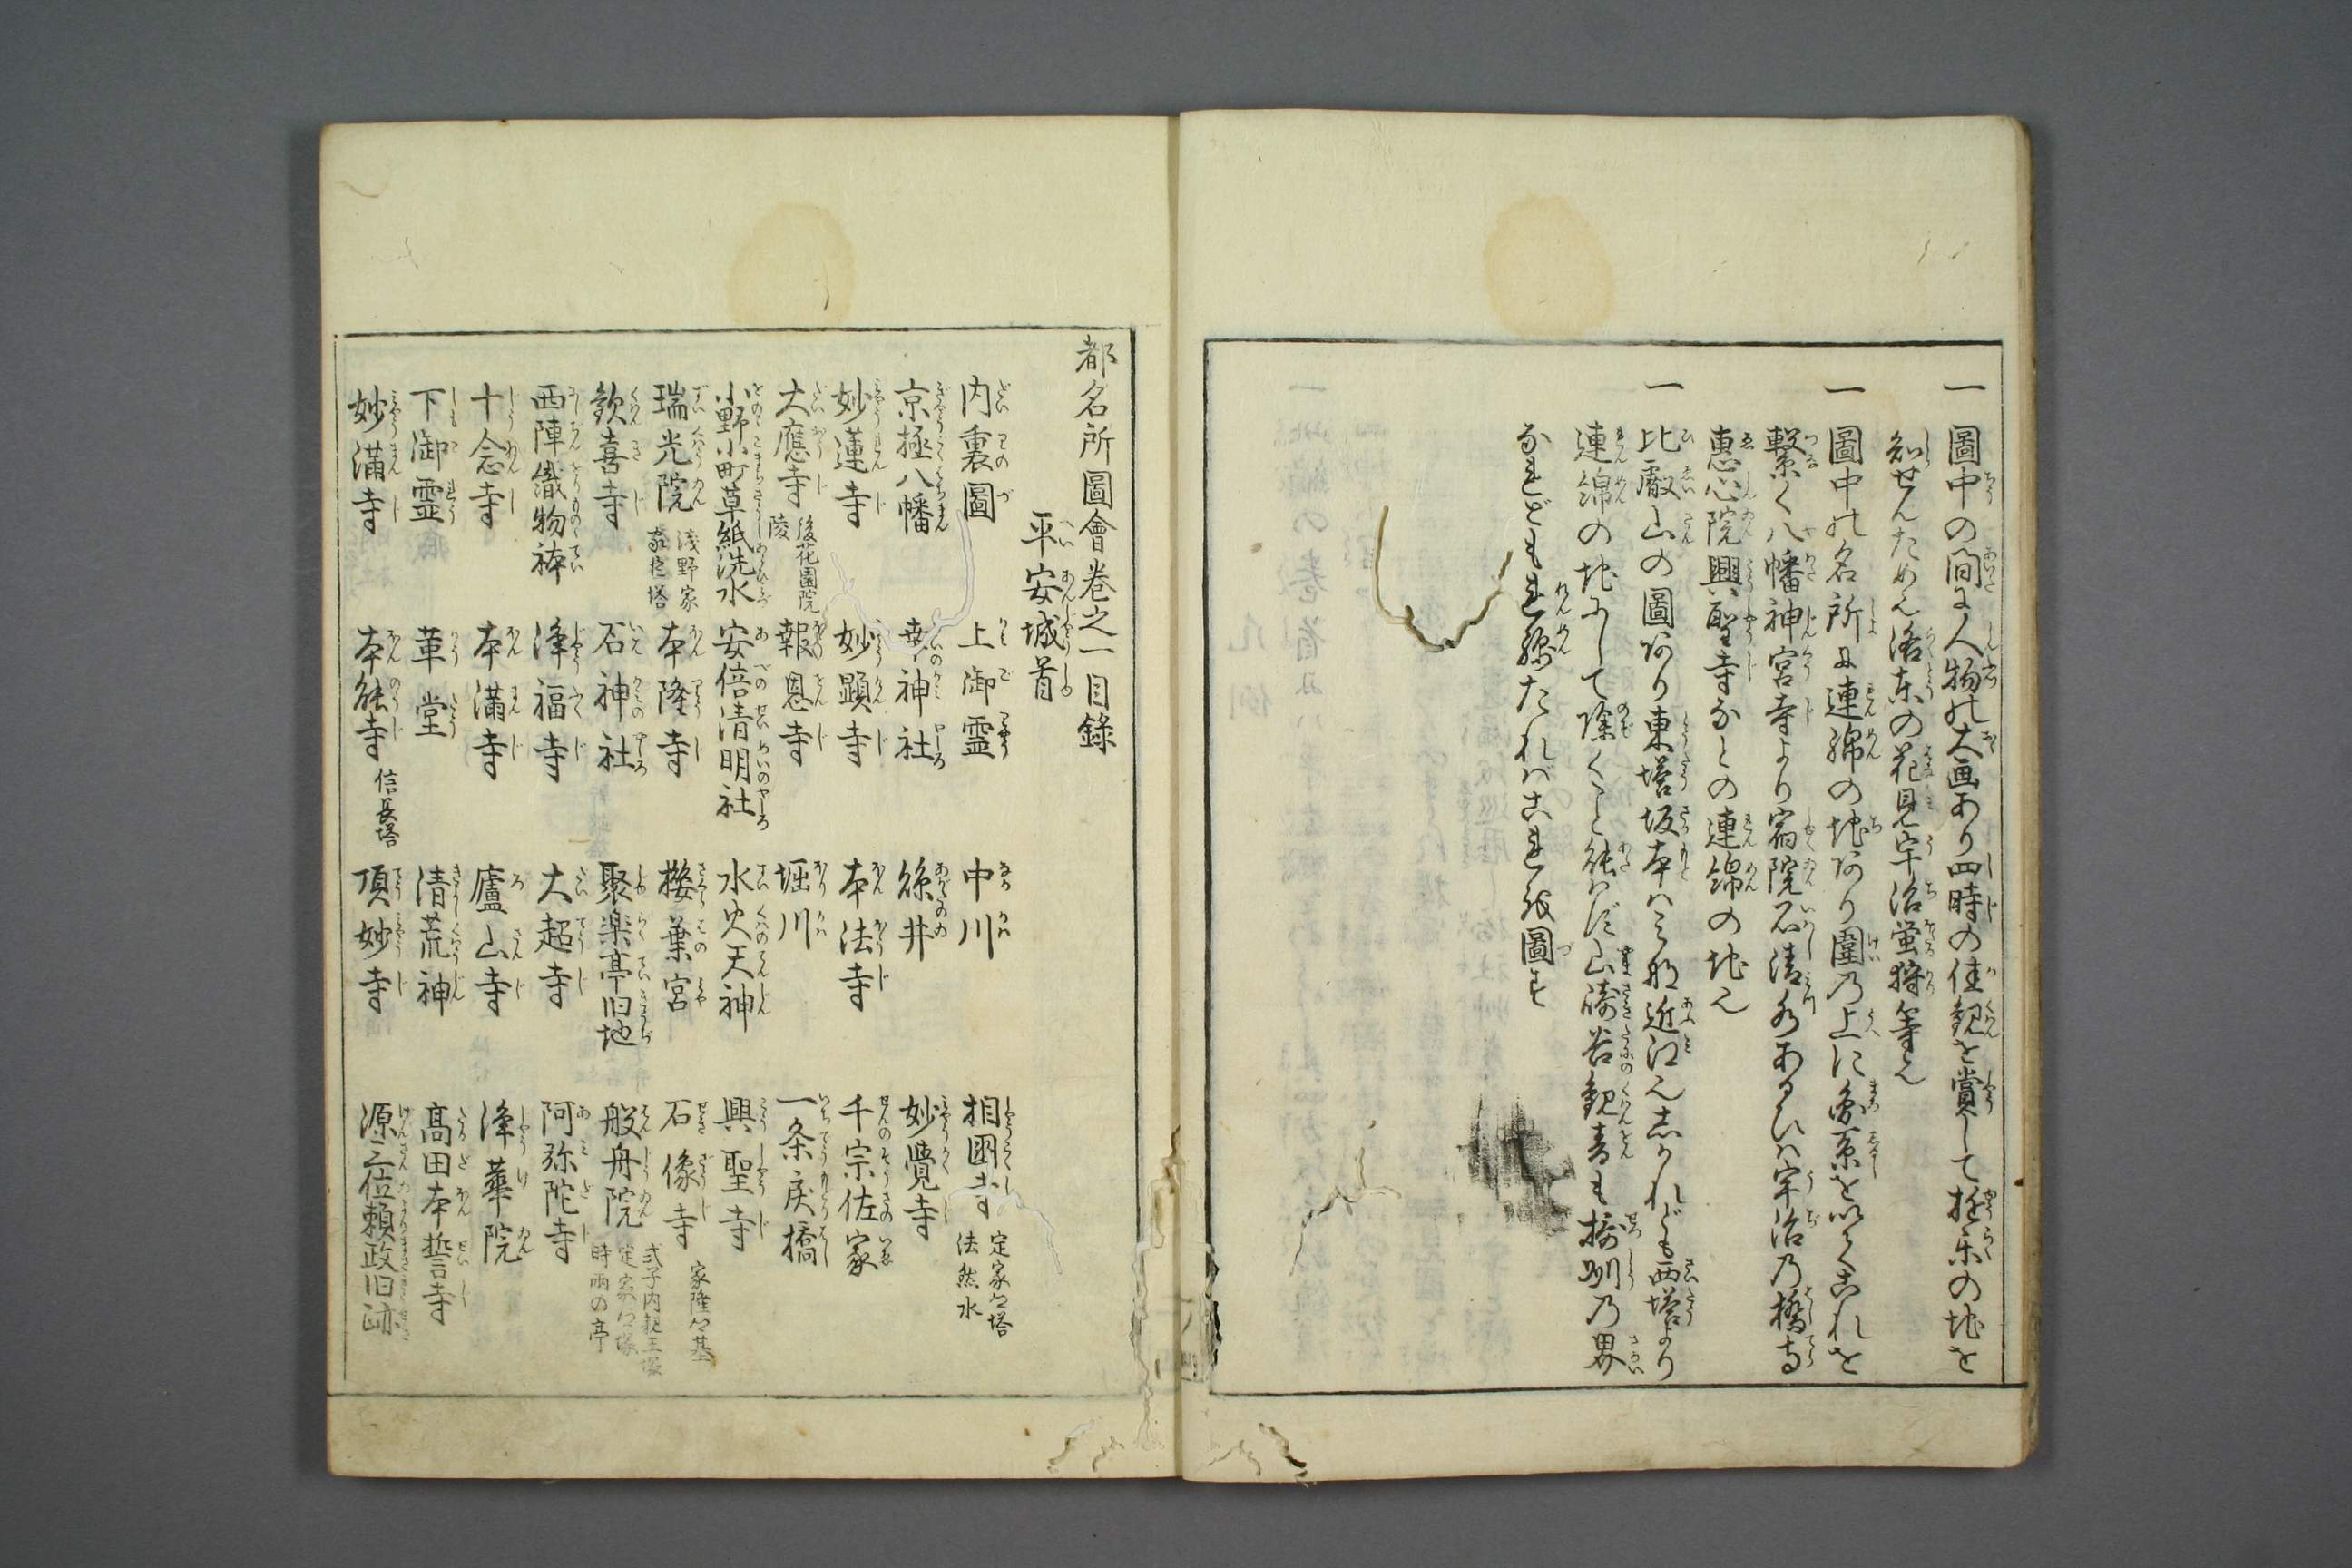 一 圖中の間に人物の大画あり四時の佳観を賞して遊楽の地を
知せんため也洛東の花見宇治蛍狩等也
一 圖中の名所に連綿の地あり圍の上に合印を以てこれを
繋く八幡神宮寺より宿院石清水あるひは宇治の橋寺
恵心院興聖寺などの連綿の地也
一 比叡山の圖あり東塔坂本はみな近江也しかれども西塔より
連綿の地にして除くこと能はず山崎谷観音も摂州の界
なれども連綿たればこれを圖す
都名所圖會巻之一目録
平安城首
内裏圖 上御霊 中川 相國寺 定家卿塔 法然水
京極八幡 幸神社 絲井 妙覺寺
妙蓮寺 妙顕寺 本法寺 千宗佐家
大應寺 後花園院陵 報恩寺 堀川 一条戻橋
小野小町草紙洗水 安倍清明社 水火天神 興聖寺
瑞光院 浅野家 本隆寺 櫻葉宮 石像寺 家隆卿墓
歓喜寺 石神社 聚楽亭旧地 般舟院 式子内親王塚 定家卿塚 時雨の亭
西陣織物 浄福寺 大超寺 阿弥陀寺
十念寺 本満寺 廬山寺 浄華院
下御霊 革堂 清荒神 高田本誓寺
妙満寺 本能寺 信長塔 頂妙寺 源三位頼政旧跡